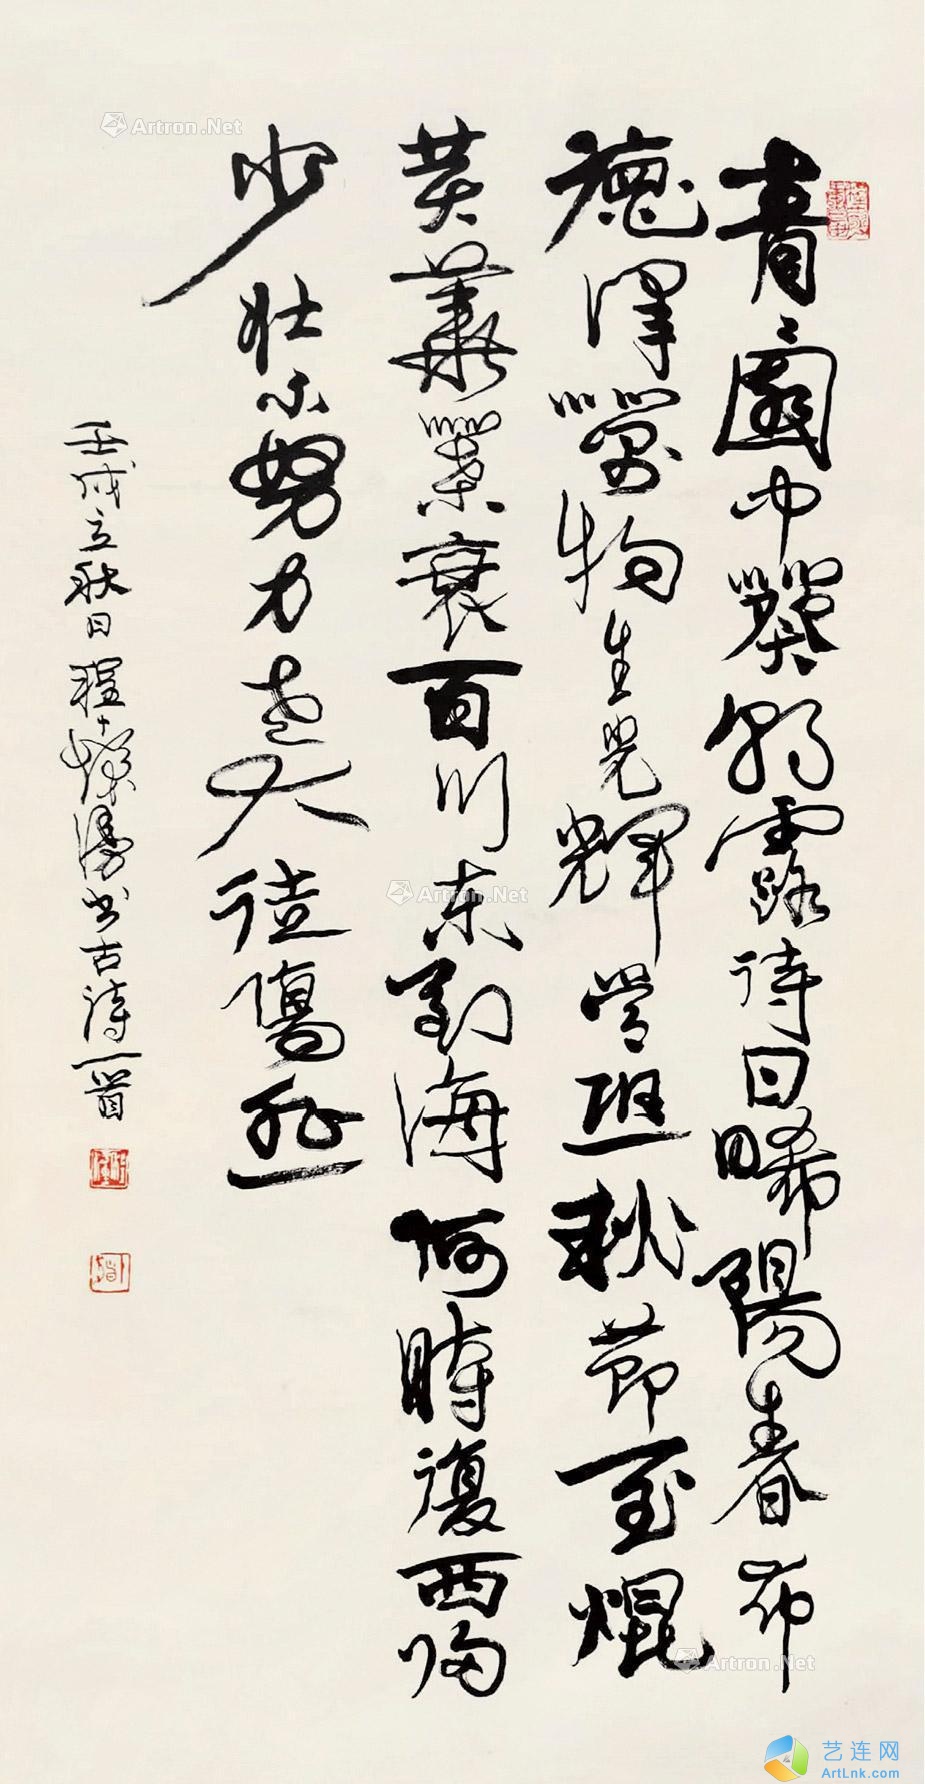 青々園中葵朝露待日晞陽春布
德澤萬物生光輝常恐秋節至焜
黃華葉衰百川東到海何時復西歸
少壯不努力老大徒傷悲
壬戌立秋日程十髮漫書古詩一首
Artron.Net
Artron.Net
Artron.Net
艺连网
ArtLnk.com